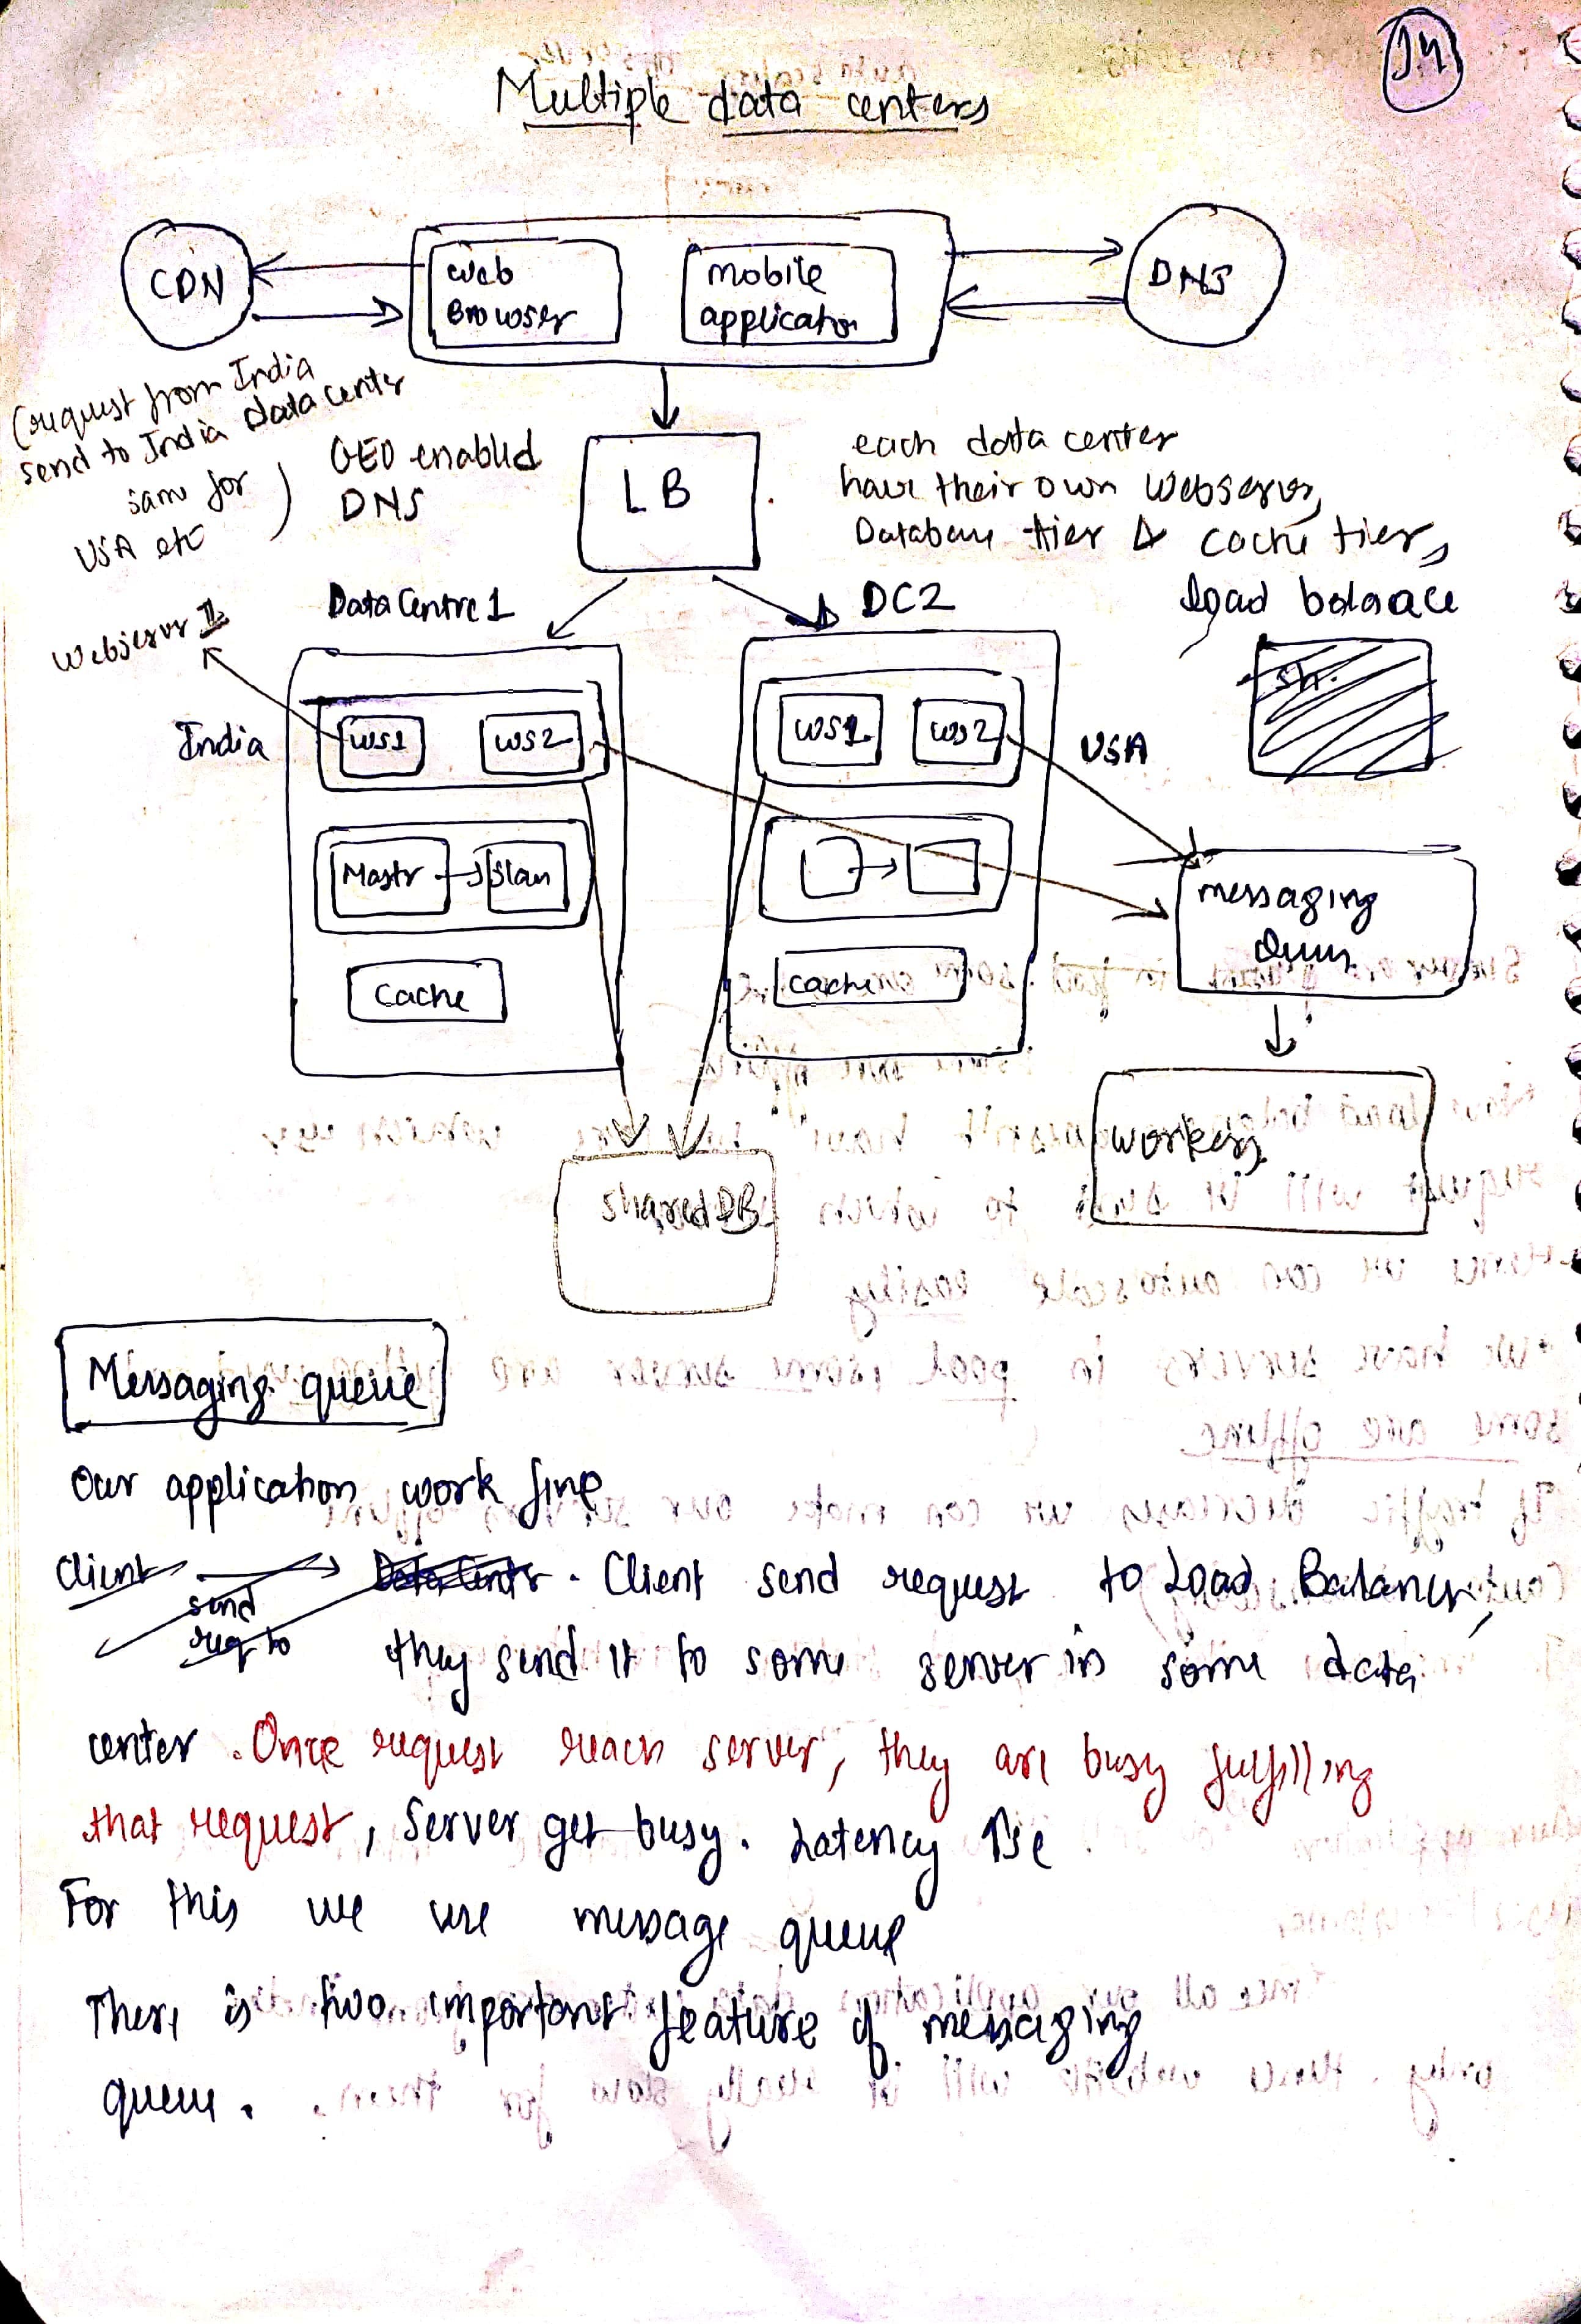 14
Multiple data centers
CDN
Web
Browser
mobile
application
DNS
(request from India
send to India data center
same for
USA etc)
GEO enabled
DNS
LB
each data center
have their own Webserver,
Database tier & cache tier,
load balance
Data Centre 1
DC2
Webserver 1
India
WS1
WS2
WS1
WS2
USA
sh.
Mastr
Slav
messaging
Cache
cache
workers
shared DB
Messaging queue
Our application work fine
Client
send
req to
Data Center
. Client send request to Load Balancer,
they send it to some server in some data
center. Once request reach server, they are busy fulfilling
that request, Server get busy. Latency rise
For this we use message queue
There is two important feature of messaging
queue.